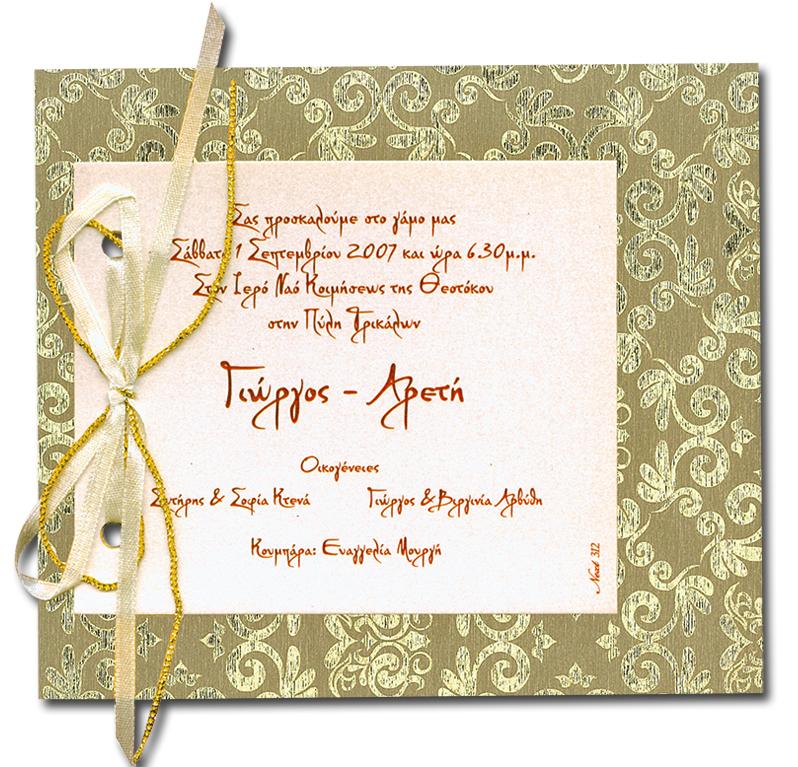 Σας προσκαλούμε στο γάμο μας
Σάββατο 1 Σεπτεμβρίου 2007 και ώρα 6.30μ.μ.
Στον Ιερό Ναό Κοιμήσεως της Θεοτόκου
στην Πύλη Τρικάλων
Γιώργος - Αρετή
Οικογένειες
Σωτήρης & Σοφία Κτενά Γιώργος & Βιργινία Αρβύθη
Κουμπάρα: Ευαγγελία Μουργή
Next 312